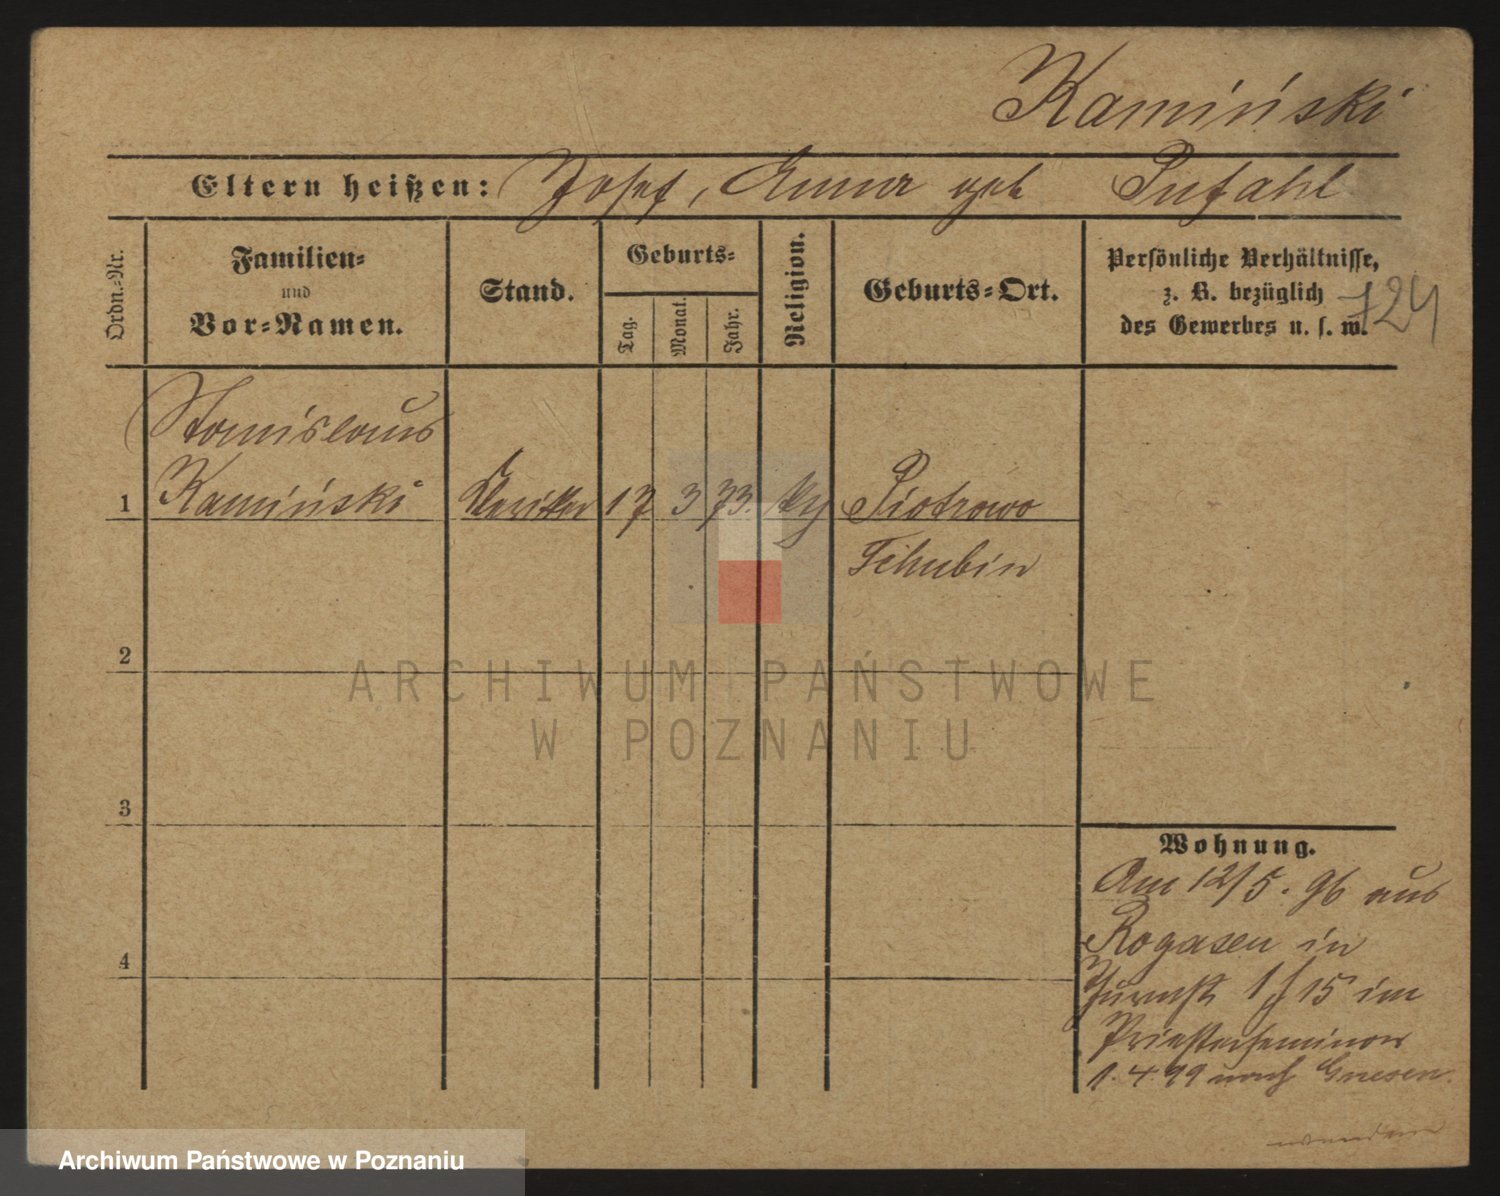 Kamiński
Eltern heißen: Josef, Anna geb Pufahl
Ordn.-Nr.
Familien-
und
Vor-Namen.
Stand.
Geburts-
Tag.
Monat.
Jahr.
Religion.
Geburts-Ort.
Persönliche Verhältnisse,
z. B. bezüglich
des Gewerbes u. s. w.
724
Stanislaus
1 Kamiński Kleriker 17 3 73. Piotrowo
Schubin
2
3
4
Wohnung.
Am 12/5. 96 aus
Rogasen in
Thurmstr 15 im
Priesterseminar
1. 4. 99 nach Gnesen.
ARCHIWUM PAŃSTWOWE
W POZNANIU
Archiwum Państwowe w Poznaniu